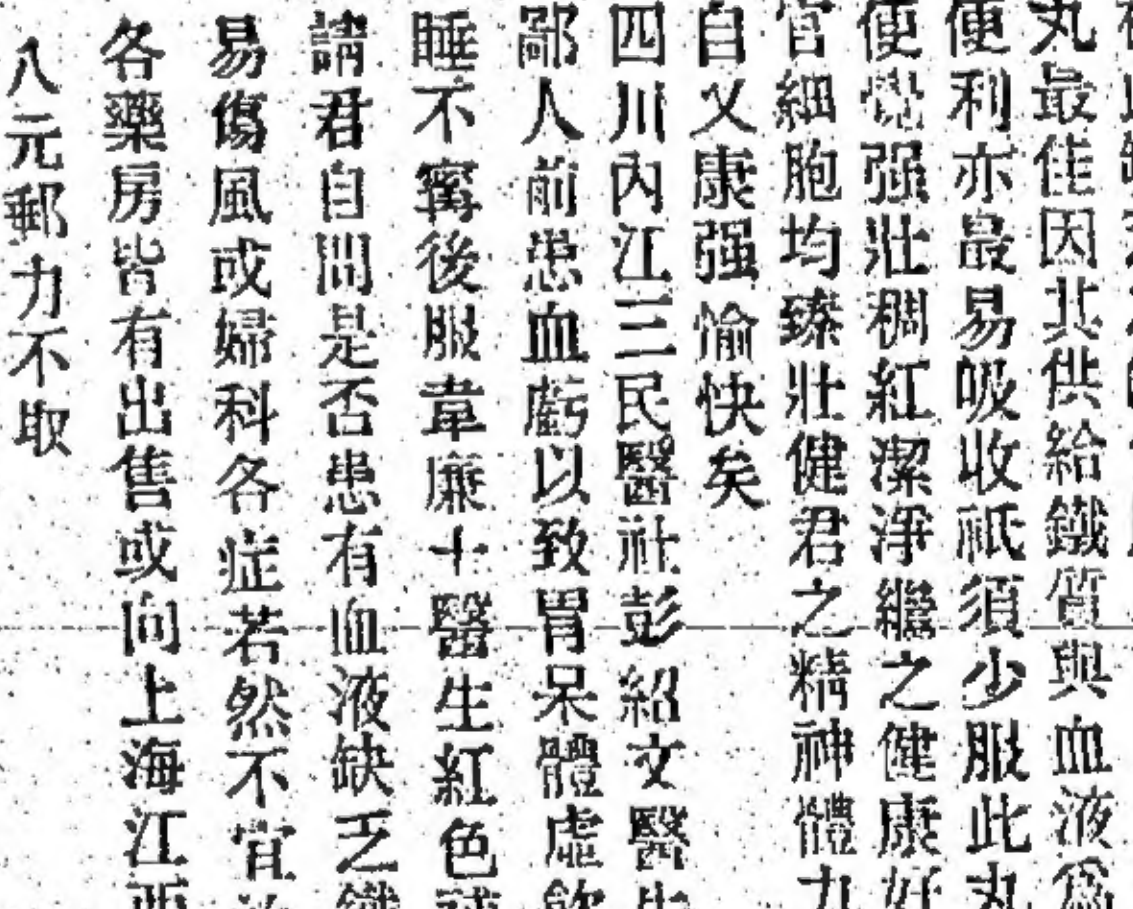 丸最佳因其供給鐵質與血液爲
便利亦最易吸收祇須少服此丸
便覺强壯稠紅潔淨繼之健康好
官細胞均臻壯健君之精神體力
自又康强愉快矣
四川內江三民醫社彭紹文醫生
鄙人前患血虧以致胃呆體虛飲
睡不寗後服韋廉士醫生紅色
請君自問是否患有血液缺乏鐵
易傷風或婦科各症若然不宜
各藥房皆有出售或向上海江西
八元郵力不取